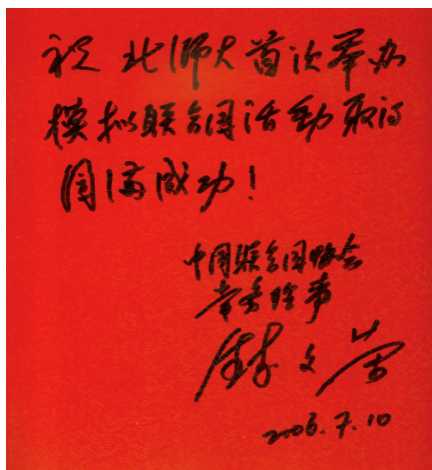 祝 北师大首次举办
模拟联合国活动取得
圆满成功！
中国联合国协会
常务理事
钱文荣
2006.7.10